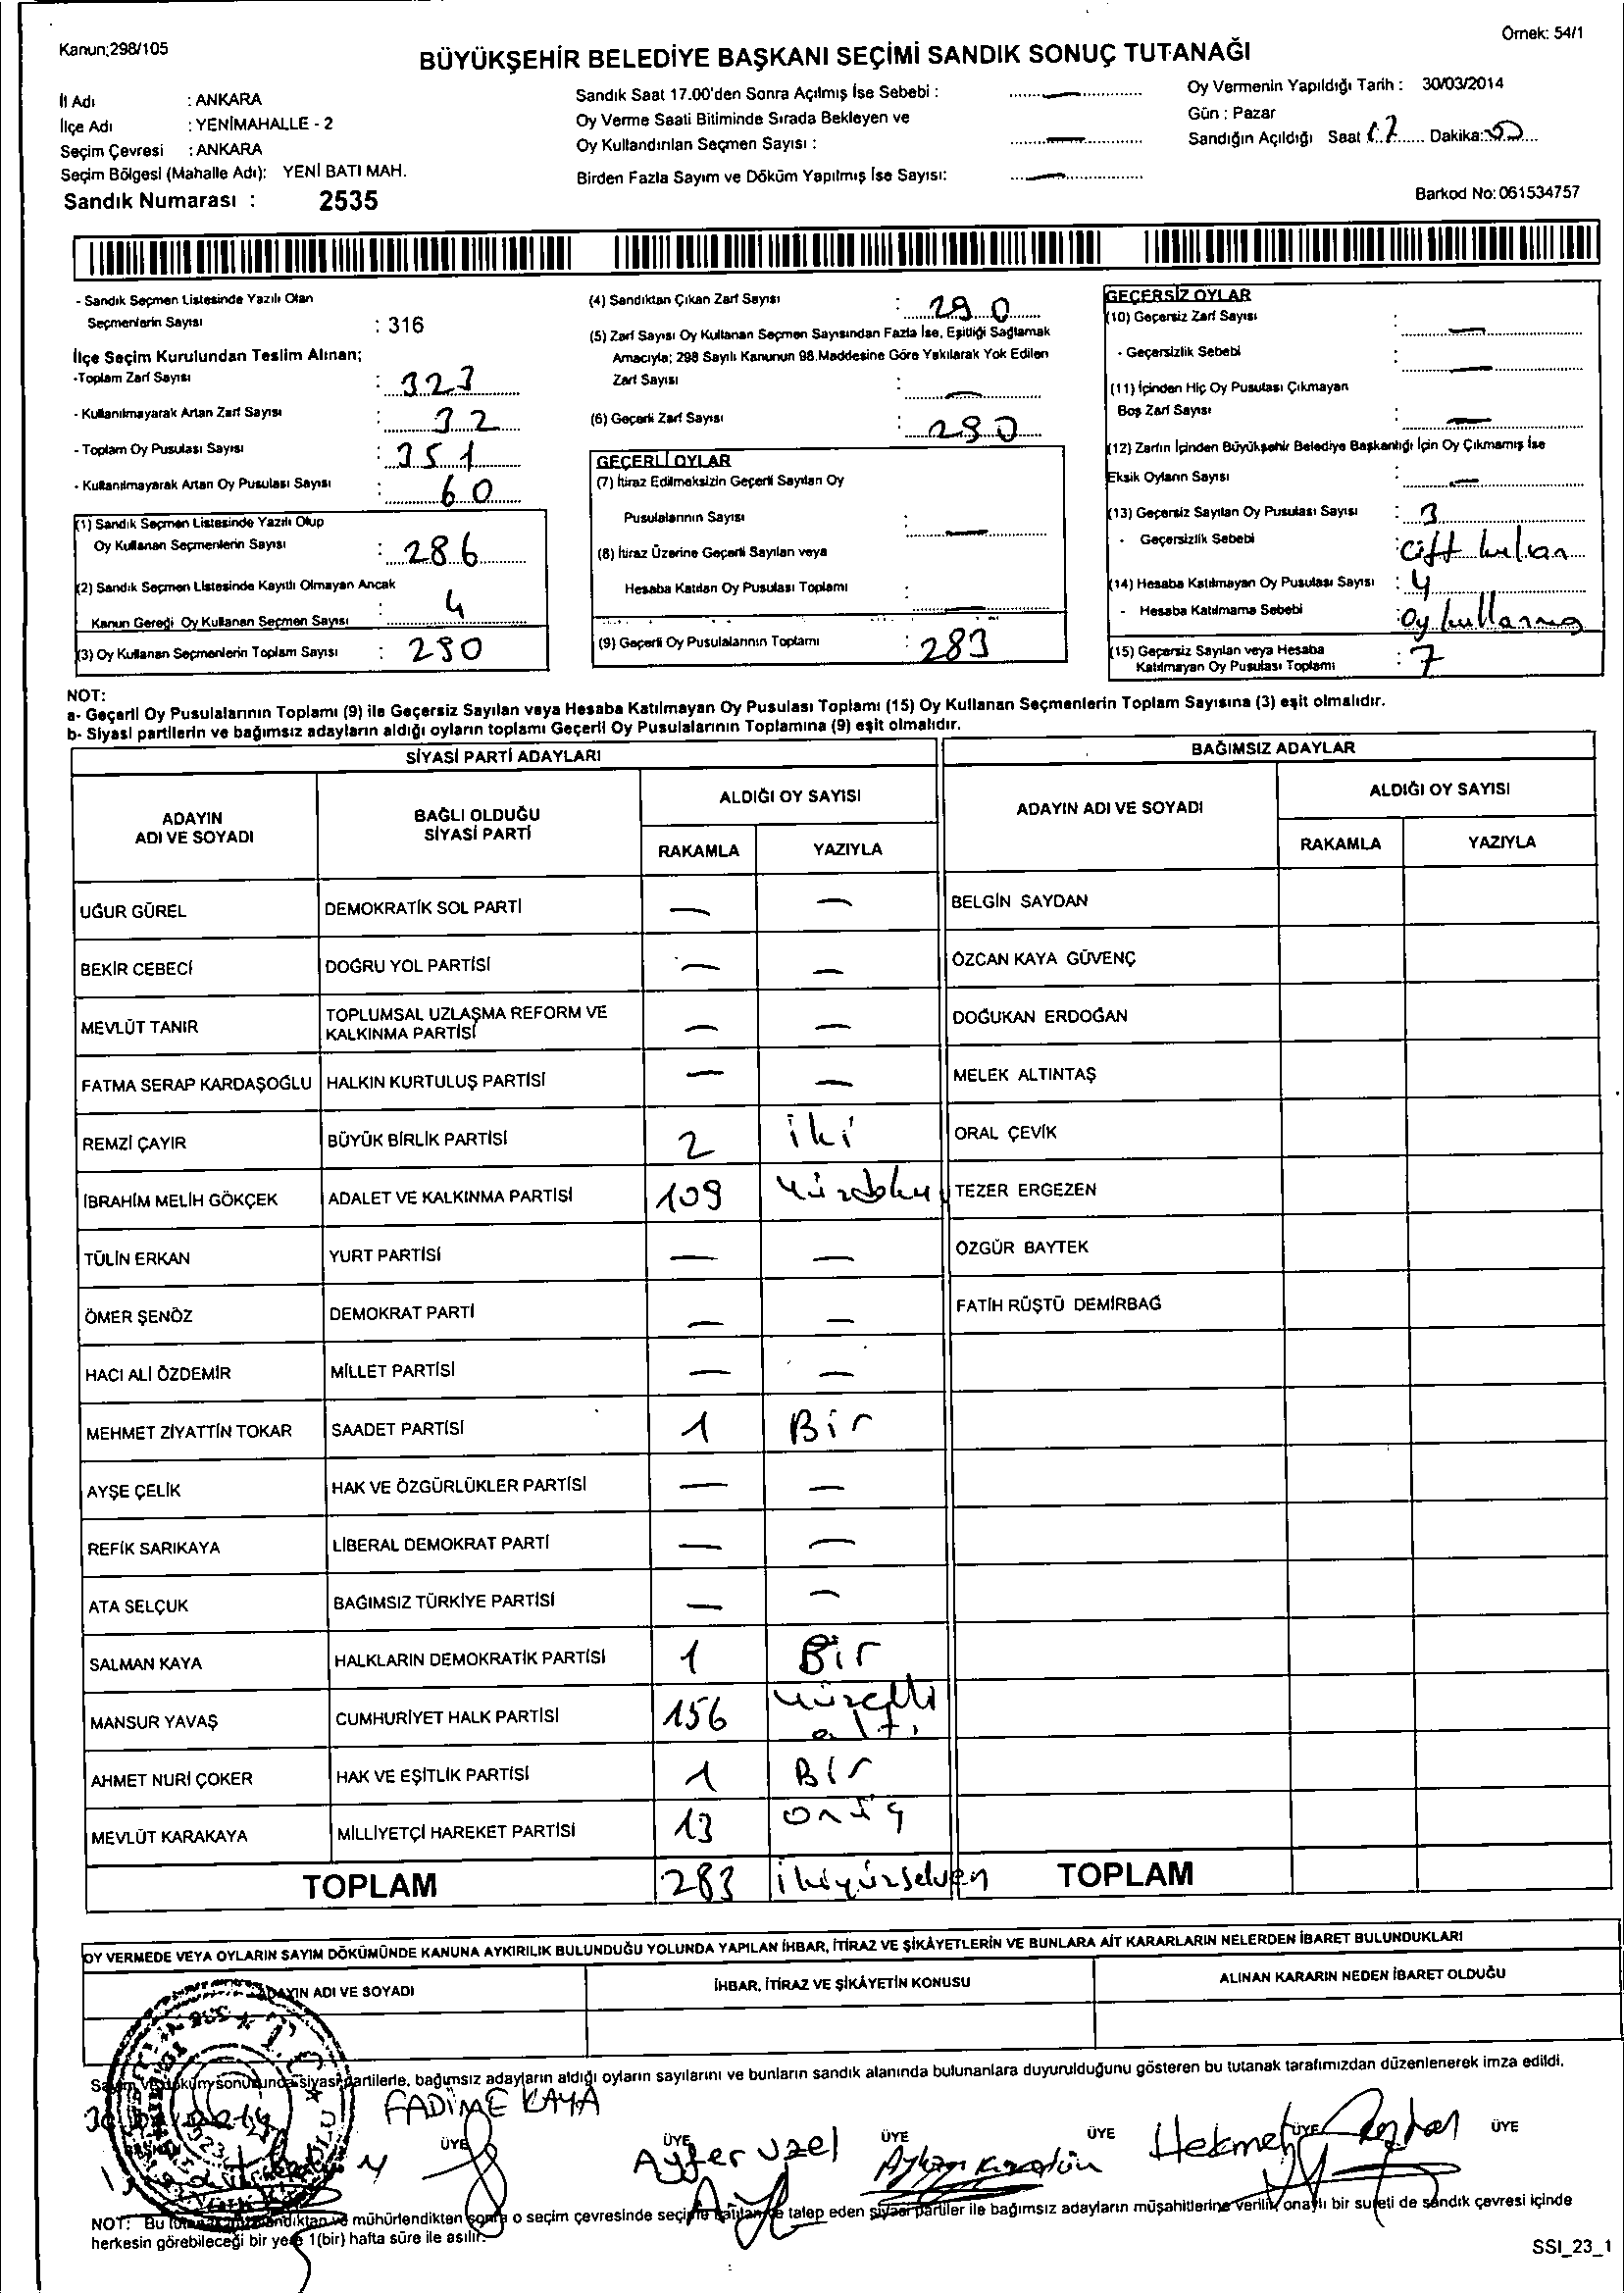 Kanun;298/105
Örnek: 54/1
BÜYÜKŞEHİR BELEDİYE BAŞKANI SEÇİMİ SANDIK SONUÇ TUTANAĞI
İl Adı : ANKARA
İlçe Adı : YENİMAHALLE - 2
Seçim Çevresi : ANKARA
Seçim Bölgesi (Mahalle Adı): YENİ BATI MAH.
Sandık Numarası : 2535
Sandık Saat 17.00'den Sonra Açılmış İse Sebebi : —
Oy Verme Saati Bitiminde Sırada Bekleyen ve
Oy Kullandırılan Seçmen Sayısı : —
Birden Fazla Sayım ve Döküm Yapılmış İse Sayısı: —
Oy Vermenin Yapıldığı Tarih : 30/03/2014
Gün : Pazar
Sandığın Açıldığı Saat 17 Dakika:
Barkod No: 061534757
- Sandık Seçmen Listesinde Yazılı Olan
Seçmenlerin Sayısı : 316
İlçe Seçim Kurulundan Teslim Alınan;
-Toplam Zarf Sayısı : 323
- Kullanılmayarak Artan Zarf Sayısı : 32
- Toplam Oy Pusulası Sayısı : 351
- Kullanılmayarak Artan Oy Pusulası Sayısı : 60
(1) Sandık Seçmen Listesinde Yazılı Olup
Oy Kullanan Seçmenlerin Sayısı : 286
(2) Sandık Seçmen Listesinde Kayıtlı Olmayan Ancak
Kanun Gereği Oy Kullanan Seçmen Sayısı : 4
(3) Oy Kullanan Seçmenlerin Toplam Sayısı : 290
(4) Sandıktan Çıkan Zarf Sayısı : 290
(5) Zarf Sayısı Oy Kullanan Seçmen Sayısından Fazla İse, Eşitliği Sağlamak
Amacıyla; 298 Sayılı Kanunun 98.Maddesine Göre Yakılarak Yok Edilen
Zarf Sayısı : —
(6) Geçerli Zarf Sayısı : 290
GEÇERLİ OYLAR
(7) İtiraz Edilmeksizin Geçerli Sayılan Oy
Pusulalarının Sayısı : —
(8) İtiraz Üzerine Geçerli Sayılan veya
Hesaba Katılan Oy Pusulası Toplamı :
(9) Geçerli Oy Pusulalarının Toplamı : 283
GEÇERSİZ OYLAR
(10) Geçersiz Zarf Sayısı : —
- Geçersizlik Sebebi : —
(11) İçinden Hiç Oy Pusulası Çıkmayan
Boş Zarf Sayısı : —
(12) Zarfın İçinden Büyükşehir Belediye Başkanlığı İçin Oy Çıkmamış İse
Eksik Oyların Sayısı : —
(13) Geçersiz Sayılan Oy Pusulası Sayısı : 3
- Geçersizlik Sebebi : Çift kullan
(14) Hesaba Katılmayan Oy Pusulası Sayısı : 4
- Hesaba Katılmama Sebebi : Oy kullanmış
(15) Geçersiz Sayılan veya Hesaba
Katılmayan Oy Pusulası Toplamı : 7
NOT:
a- Geçerli Oy Pusulalarının Toplamı (9) ile Geçersiz Sayılan veya Hesaba Katılmayan Oy Pusulası Toplamı (15) Oy Kullanan Seçmenlerin Toplam Sayısına (3) eşit olmalıdır.
b- Siyasi partilerin ve bağımsız adayların aldığı oyların toplamı Geçerli Oy Pusulalarının Toplamına (9) eşit olmalıdır.
SİYASİ PARTİ ADAYLARI
ADAYIN
ADI VE SOYADI
BAĞLI OLDUĞU
SİYASİ PARTİ
ALDIĞI OY SAYISI
RAKAMLA YAZIYLA
UĞUR GÜREL DEMOKRATİK SOL PARTİ — —
BEKİR CEBECİ DOĞRU YOL PARTİSİ — —
MEVLÜT TANIR TOPLUMSAL UZLAŞMA REFORM VE
KALKINMA PARTİSİ — —
FATMA SERAP KARDAŞOĞLU HALKIN KURTULUŞ PARTİSİ — —
REMZİ ÇAYIR BÜYÜK BİRLİK PARTİSİ 2 iki
İBRAHİM MELİH GÖKÇEK ADALET VE KALKINMA PARTİSİ 109 yüzdoku
TÜLİN ERKAN YURT PARTİSİ — —
ÖMER ŞENÖZ DEMOKRAT PARTİ — —
HACI ALİ ÖZDEMİR MİLLET PARTİSİ — —
MEHMET ZİYATTİN TOKAR SAADET PARTİSİ 1 Bir
AYŞE ÇELİK HAK VE ÖZGÜRLÜKLER PARTİSİ — —
REFİK SARIKAYA LİBERAL DEMOKRAT PARTİ — —
ATA SELÇUK BAĞIMSIZ TÜRKİYE PARTİSİ — —
SALMAN KAYA HALKLARIN DEMOKRATİK PARTİSİ 1 Bir
MANSUR YAVAŞ CUMHURİYET HALK PARTİSİ 156 yüzelli
altı
AHMET NURİ ÇOKER HAK VE EŞİTLİK PARTİSİ 1 Bir
MEVLÜT KARAKAYA MİLLİYETÇİ HAREKET PARTİSİ 13 onüç
TOPLAM 283
BAĞIMSIZ ADAYLAR
ADAYIN ADI VE SOYADI
ALDIĞI OY SAYISI
RAKAMLA YAZIYLA
BELGİN SAYDAN
ÖZCAN KAYA GÜVENÇ
DOĞUKAN ERDOĞAN
MELEK ALTINTAŞ
ORAL ÇEVİK
TEZER ERGEZEN
ÖZGÜR BAYTEK
FATİH RÜŞTÜ DEMİRBAĞ
TOPLAM
OY VERMEDE VEYA OYLARIN SAYIM DÖKÜMÜNDE KANUNA AYKIRILIK BULUNDUĞU YOLUNDA YAPILAN İHBAR, İTİRAZ VE ŞİKÂYETLERİN VE BUNLARA AİT KARARLARIN NELERDEN İBARET BULUNDUKLARI
ADAYIN ADI VE SOYADI
İHBAR, İTİRAZ VE ŞİKÂYETİN KONUSU
ALINAN KARARIN NEDEN İBARET OLDUĞU
Sayım ve döküm sonucunda siyasi partilerle, bağımsız adayların aldığı oyların sayılarını ve bunların sandık alanında bulunanlara duyurulduğunu gösteren bu tutanak tarafımızdan düzenlenerek imza edildi.
FADİME KAYA
BAŞKAN ÜYE ÜYE ÜYE ÜYE ÜYE ÜYE
Ayfer uzel
NOT: Bu tutanak mühürlendikten sonra o seçim çevresinde seçime katılan ve talep eden siyasi partiler ile bağımsız adayların müşahitlerine verilir, onaylı bir sureti de sandık çevresi içinde
herkesin görebileceği bir yere 1(bir) hafta süre ile asılır.
SSI_23_1